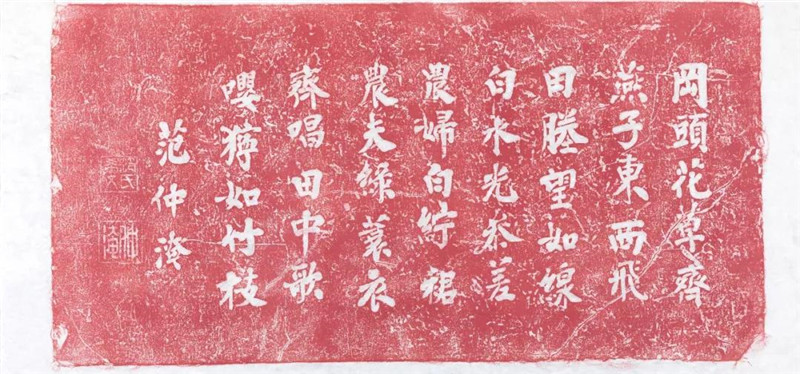 岡頭花草齊
燕子東西飛
田塍望如線
白水光叅差
農婦白紵裙
農夫綠蓑衣
齊唱田中歌
嚶獰如竹枝
范仲淹